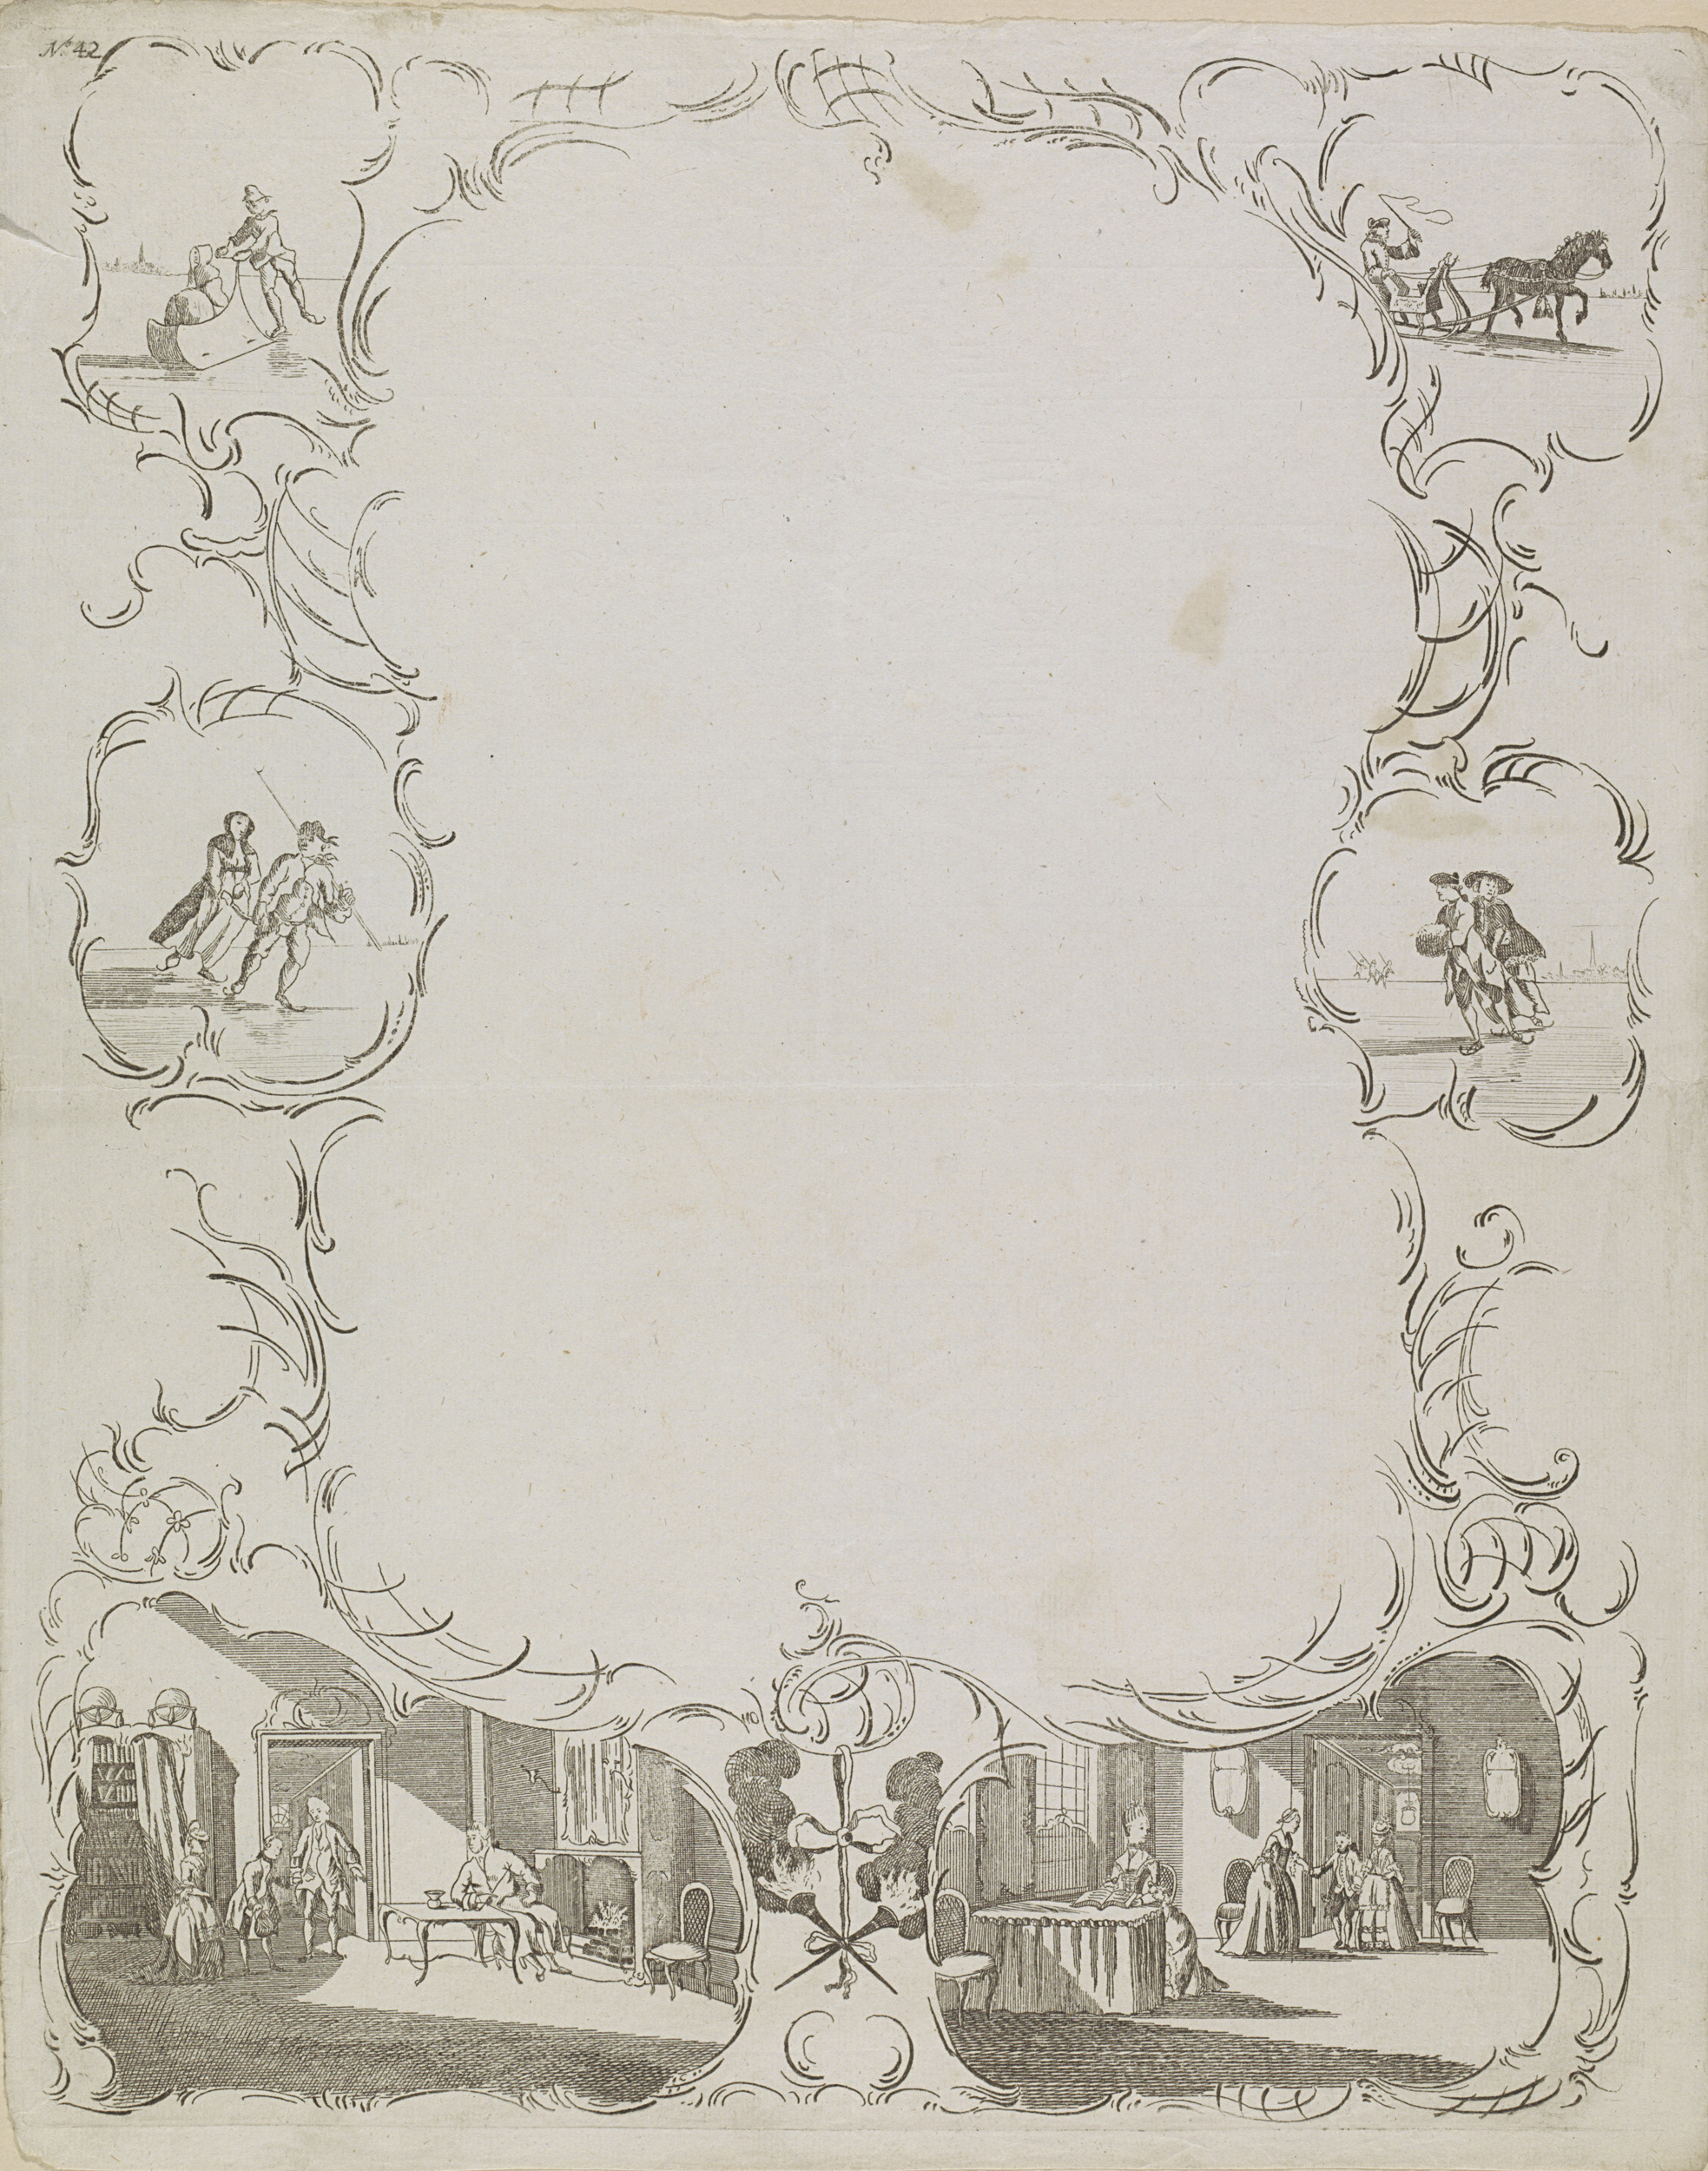 No. 42